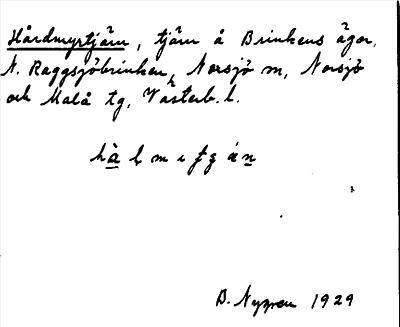 Hårdmyrtjärn, tjärn å Brinkens ägor,
N. Raggsjöbrinken, Norsjö sn, Norsjö
och Malå tg, Västerb. l.
B. Nygren 1929